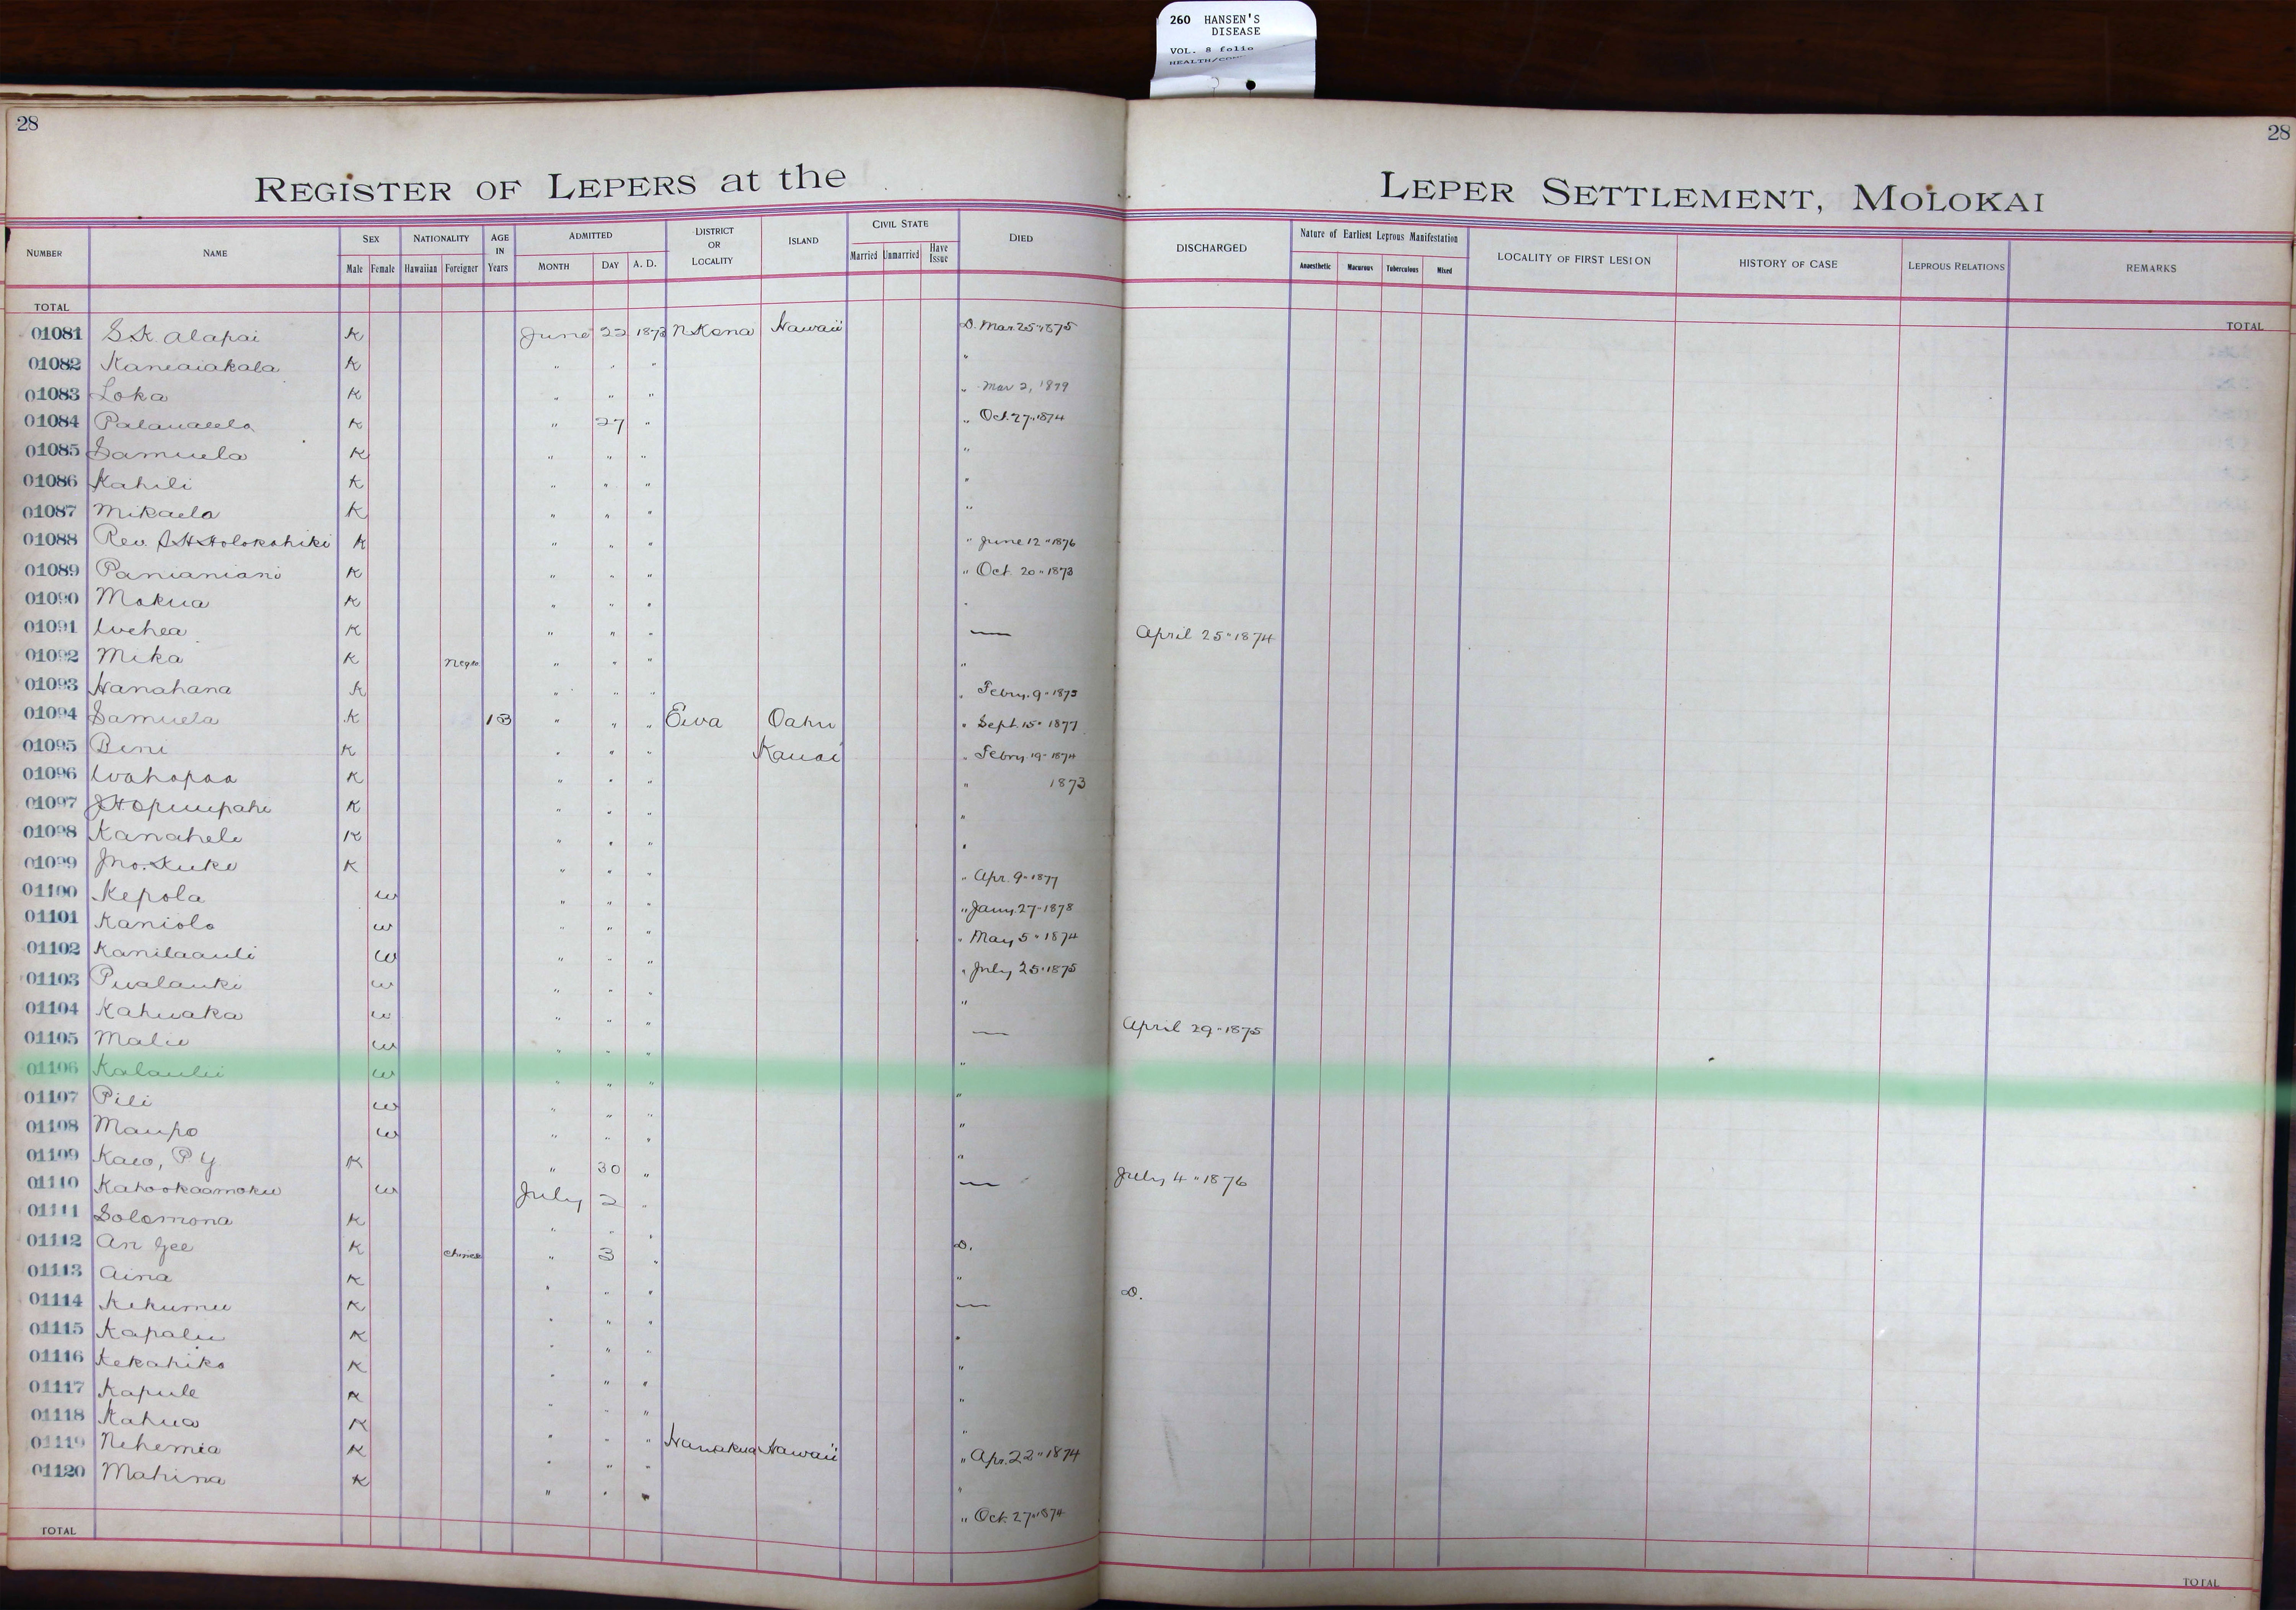 260 HANSEN'S
DISEASE
VOL. 8 folio
28
28
REGISTER OF LEPERS at the LEPER SETTLEMENT, MOLOKAI
NUMBER NAME SEX Male Female NATIONALITY Hawaiian Foreigner AGE IN Years ADMITTED MONTH DAY A. D. DISTRICT OR LOCALITY ISLAND CIVIL STATE Married Unmarried Have Issue DIED DISCHARGED Nature of Earliest Leprous Manifestation Anaesthetic Macurous Tuberculous Mixed LOCALITY OF FIRST LESION HISTORY OF CASE LEPROUS RELATIONS REMARKS
TOTAL TOTAL
01081 S.K. Alapai K June 22 1873 N Kona Hawaii D. Mar. 25 " 1875
01082 Kaneaiakala K " " " "
01083 Loka K " " " " Mar 2, 1879
01084 K " 27 " " Oct. 27 " 1874
01085 Samuela K " " " "
01086 Kahili K " " " "
01087 Mikaela K " " " "
01088 Rev. Holokahiki K " " " " June 12 " 1876
01089 Panianiani K " " " " Oct. 20 " 1873
01090 Mokua K " " " "
01091 K " " " — April 25 " 1874
01092 Mika K Negro " " " "
01093 Hanahana K " " " " Febry. 9 "
01094 Samuela K 13 " " " Ewa Oahu " Sept. 15 " 1877
01095 Beni K " " " Kauai " Febry 19 " 1874
01096 Wahapaa K " " " " 1873
01097 K " " " "
01098 Kanahele K " " " "
01099 Jno. Kuke K " " " " Apr. 9 " 1877
01100 Kepola w " " " " Jany. 27 " 1878
01101 Kaniolo w " " " " May 5 " 1874
01102 Kanilaauli w " " " " July 25 " 1875
01103 Pualauki w " " " "
01104 Kahuaka w " " " — April 29 " 1875
01105 Malie w " " " "
01106 Kalaulii w " " " "
01107 Pili w " " " "
01108 Maupo w " " " "
01109 Kaeo, P Y K " 30 " — July 4 " 1876
01110 Kahookaamoku w July 2 "
01111 Solomona K " " "
01112 An Gee K Chinese " 3 " D.
01113 Aina K " " " "
01114 Kekumu K " " " — D.
01115 Kapalu K " " " "
01116 Kekahiko K " " " "
01117 Kapule K " " " "
01118 Kahua K " " " "
01119 Nehemia K " " " Hamakua Hawaii " Apr. 22 " 1874
01120 Mahina K " " " "
" Oct. 27 " 1874
TOTAL TOTAL